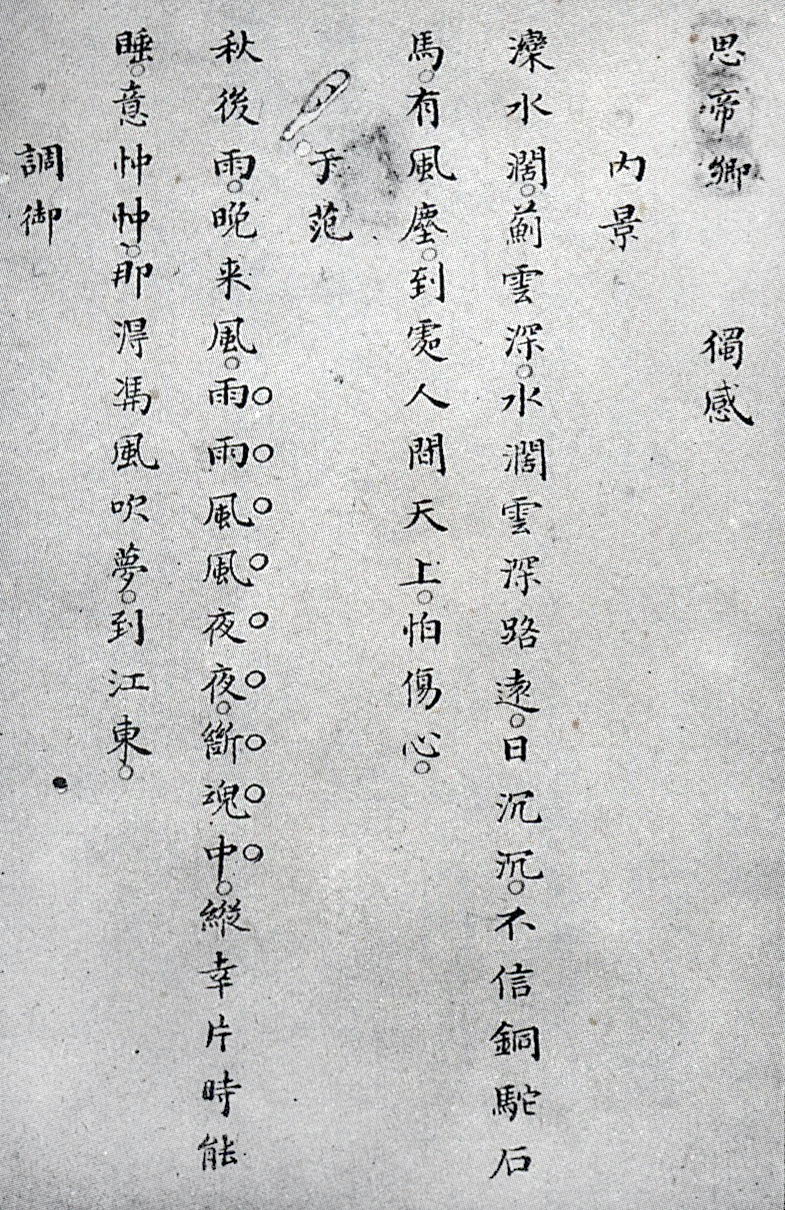 思帝鄉 獨感
内景
灤水濶薊雲深水濶雲深路遠日沉沉不信銅駝石
馬有風塵到處人間天上怕傷心
于范
秋後雨晚来風雨雨風風夜夜斷魂中縱幸片時能
睡意忡忡那得馮風吹夢到江東
調御